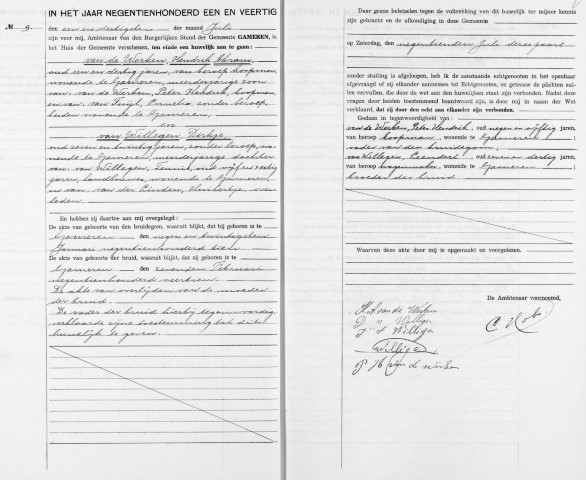 IN HET JAAR NEGENTIENHONDERD EEN EN VEERTIG
No 9.
den een en dertigsten der maand Juli
zijn voor mij, Ambtenaar van den Burgerlijken Stand der Gemeente GAMEREN, in
het Huis der Gemeente verschenen, ten einde een huwelijk aan te gaan:
van de Werken, Hendrik
oud een en dertig jaren, van beroep koopman,
wonende te Gameren, meerderjarige zoon
van van de Werken, Peter Hendrik, koopman
en van van Tuijl, Cornelia, zonder beroep,
beiden wonende te Gameren,
en
van Willigen
oud zeven en twintig jaren, zonder beroep, wo-
nende te Gameren, meerderjarige dochter
van van Willigen, Teunis, oud vijf en zestig
jaren, landbouwer, wonende te Gameren,
en van van der Linden, Huibertje, over-
leden.
En hebben zij daartoe aan mij overgelegd:
De akte van geboorte van den bruidegom, waaruit blijkt, dat hij geboren is te
Gameren den negen en twintigsten
Januari negentienhonderd tien
De akte van geboorte der bruid, waaruit blijkt, dat zij geboren is te
Gameren den zevenden Februari
negentienhonderd veertien.
De akte van overlijden van de moeder
der bruid.
De vader der bruid hierbij tegenwoordig,
verklaarde zijne toestemming tot dit
huwelijk te geven.
Daar geene beletselen tegen de voltrekking van dit huwelijk ter mijner kennis
zijn gebracht en de afkondiging in deze Gemeente
op Zaterdag, den negentienden Juli dezes jaars
zonder stuiting is afgeloopen, heb ik de aanstaande echtgenooten in het openbaar
afgevraagd of zij elkander aannemen tot Echtgenooten, en getrouw de plichten zul-
len vervullen, die door de wet aan den huwelijken staat zijn verbonden. Nadat deze
vragen door beiden toestemmend beantwoord zijn, is door mij in naam der Wet
verklaard, dat zij door den echt aan elkander zijn verbonden.
Gedaan in tegenwoordigheid van:
van de Werken, Peter Hendrik, oud negen en vijftig jaren,
van beroep koopman, wonende te Gameren,
vader van den bruidegom;
van Willigen, Leendert, oud een en dertig jaren,
van beroep wagenmaker, wonende te Gameren
broeder der bruid.
Waarvan deze akte door mij is opgemaakt en voorgelezen.
De Ambtenaar voornoemd,
H. A van de Werken
v. Willigen
v. Willigen
Willigen
P H van de Werken